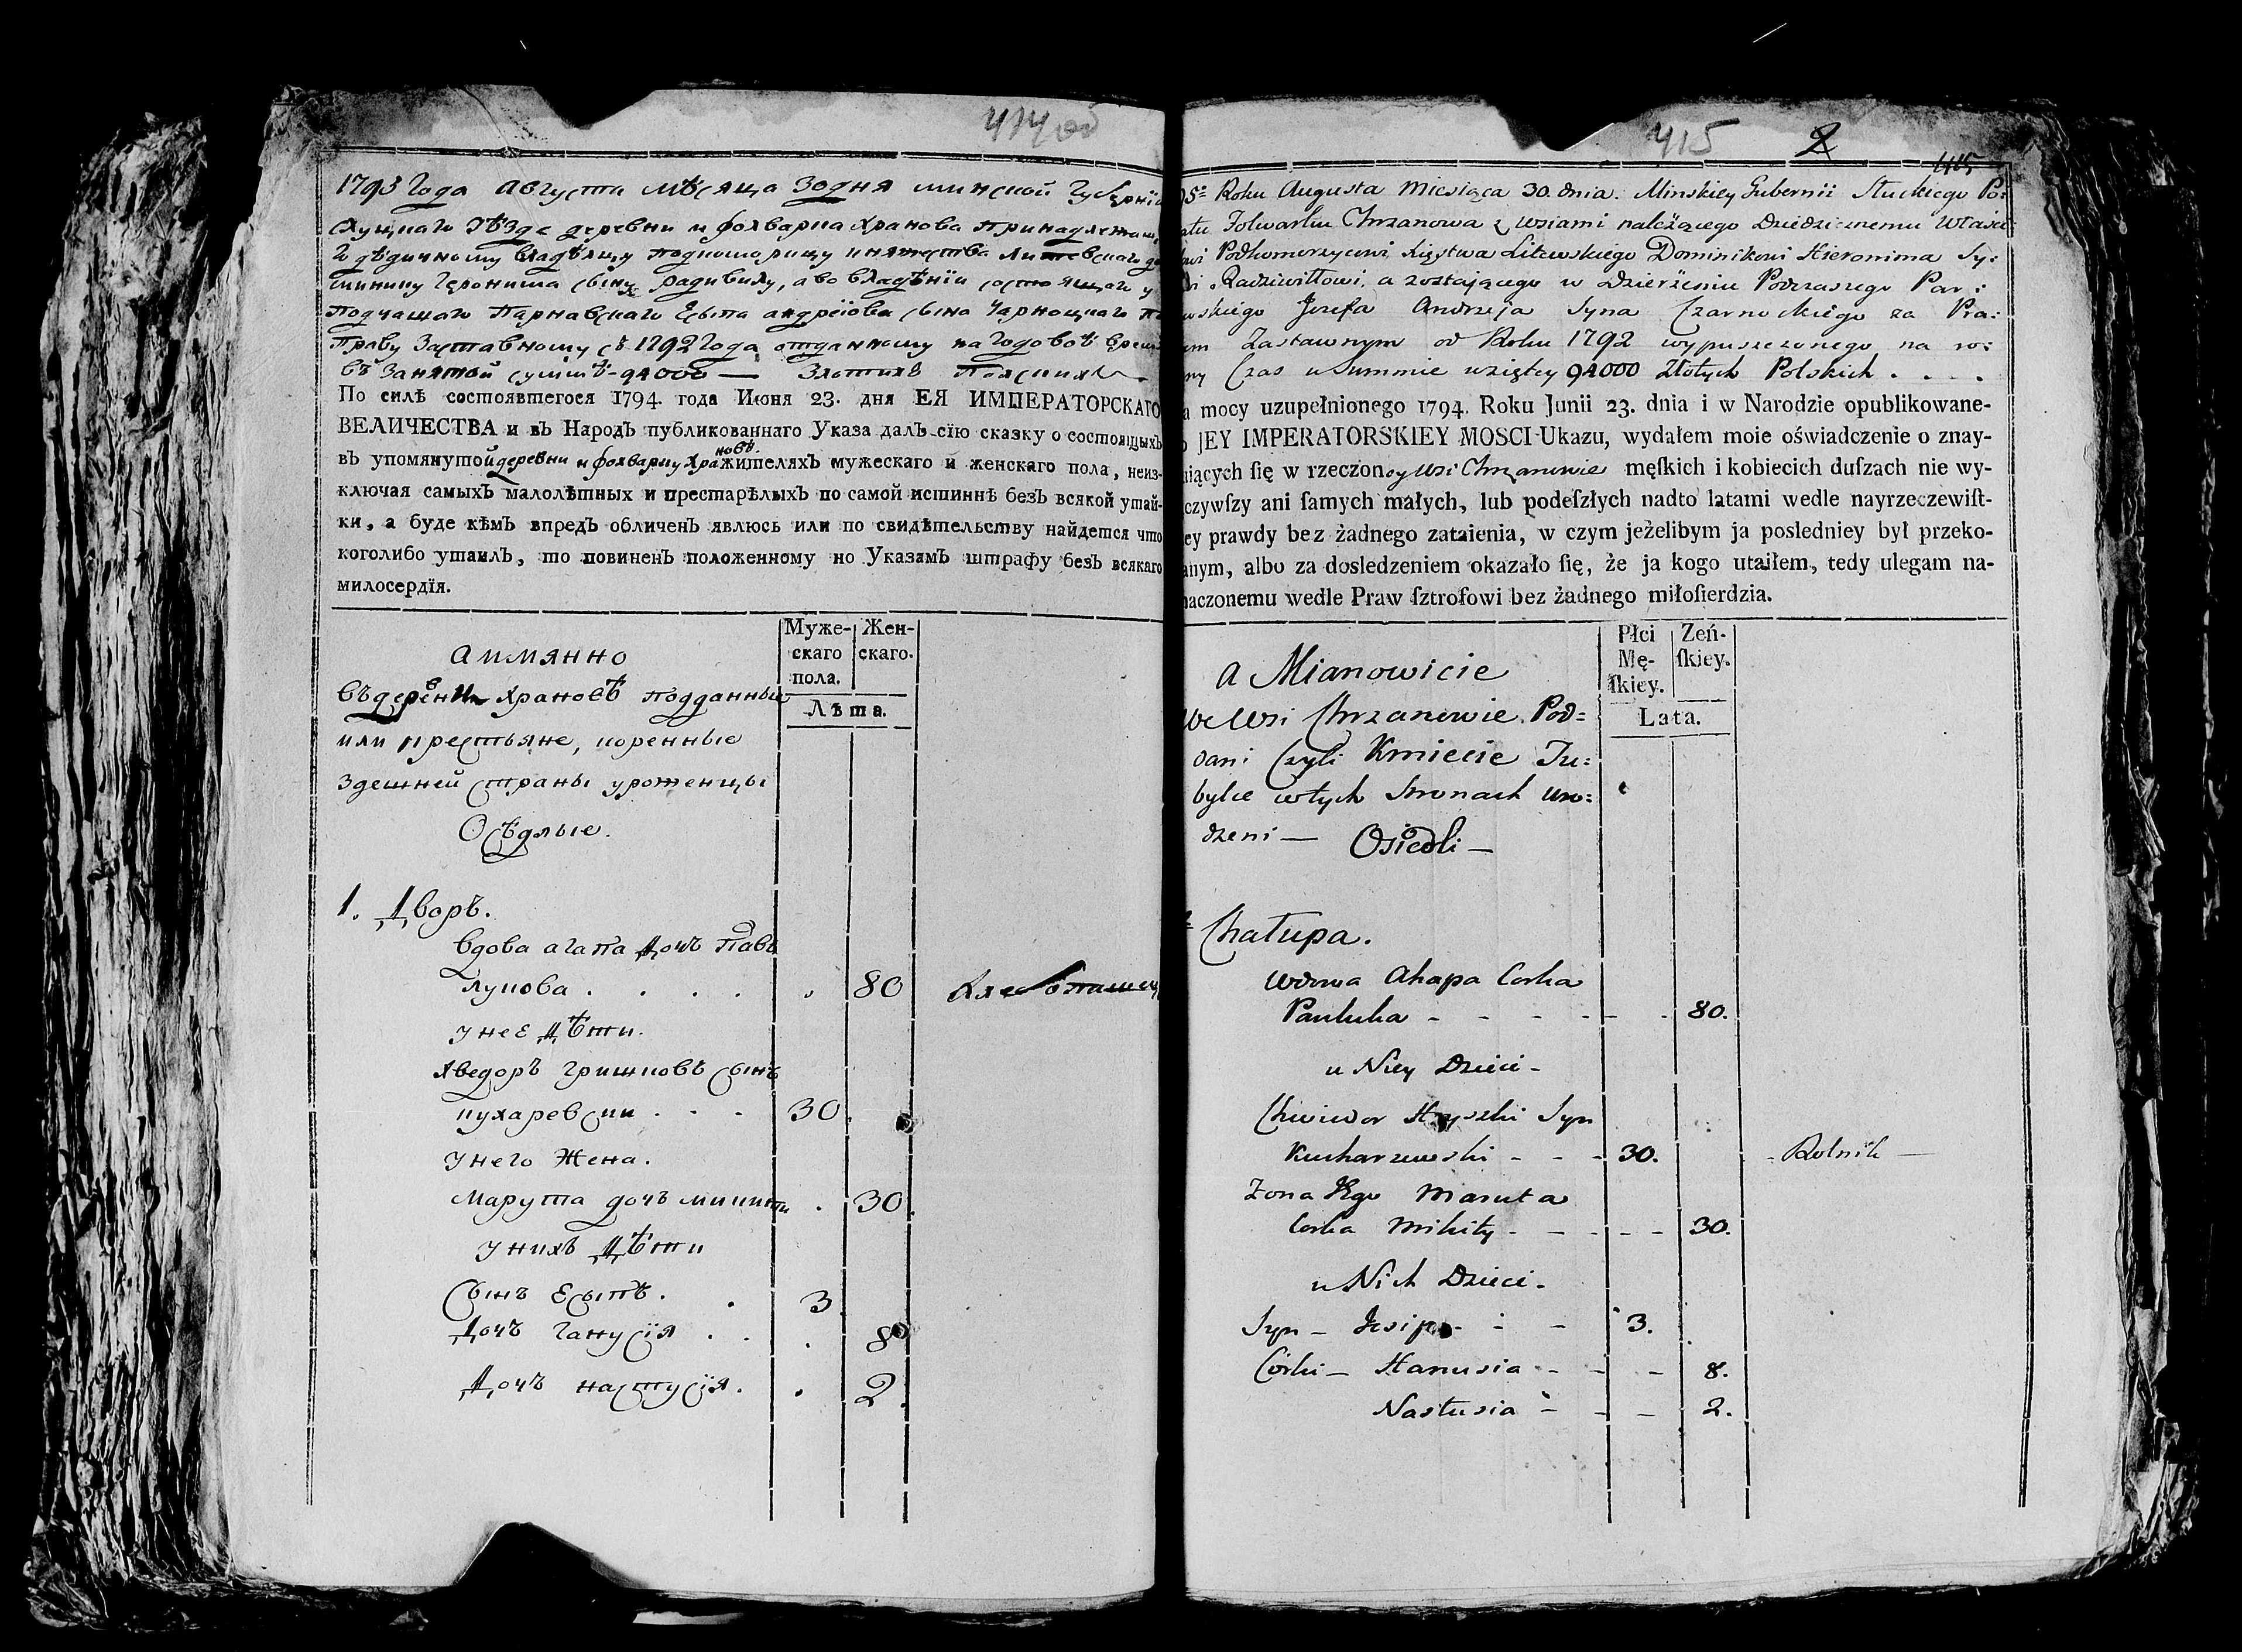 414 об
1795 Года Августа Мѣсяца 30 дня минской Губернїи
Слуцкаго Уѣзда деревни и фолварка Хранова принадлежащ
дѣдичному Владѣлцу подкоморицу княжества Литовскаго
Геронима сыну радивилу, а во владѣнїи состоящаго у
подчашаго Парнавскаго Есыпа андреїова сына Чарноцкаго По
Праву Заставному съ 1792 Года отданному на Годовоѣ время
въ Занятой суммѣ - 94000 — Злотихъ Полскихъ
По силѣ состоявшегося 1794. года Июня 23. дня ЕЯ ИМПЕРАТОРСКАГО
ВЕЛИЧЕСТВА и въ Народъ публикованнаго Указа далъ сїю сказку о состоящыхъ
въ упомянутой деревни и фолварку Храновѣ жителяхъ мужескаго и женскаго пола, неиз-
ключая самыхъ малолѣтных и престарѣлыхъ по самой истиннѣ безъ всякой утай-
ки, а буде кѣмъ впредъ обличенъ явлюсь или по свидѣтельству найдется что
коголибо утаилъ, то повиненъ положенному по Указамъ штрафу безъ всякаго
милосердїя.
Муже- Жен-
скаго скаго.
пола.
Лѣта.
а имянно
въ деревни Храновѣ подданные
или крестьяне, коренные
здешней страны уроженцы
Осѣдлые.
1. Дворъ.
вдова агапа Дочъ Павъ
лукова . . . . . 80
у неё Дѣти.
Хведоръ Гришковъ сынъ
кухаревски . . . 30.
у него Жена.
Марута дочъ микиты . 30.
у нихъ Дѣти
Сынъ Есыпъ. . 3
Дочъ Ганусїя . . . 8
Дочъ настусїя. . 2.
415 2
415
95= Roku Augusta Miesiąca 30. dnia. Minskiey Gubernii Słuckiego Po:
atu Folwarku Chrzanowa z wsiami należącego Dziedzicznemu Właści
owi Podkomorzycowi Xięstwa Litewskiego Dominikowi Hieronima Sy:
wi Radziwiłłowi, a zostającego w Dzierżeniu Podczaszego Par:
wskiego Jozefa Andrzeja Syna Czarnockiego za Pra:
em Zastawnym od Roku 1792 wypuszczonego na ro:
ny Czas w Summie wziętey 94000 Złotych Polskich . . . .
a mocy uzupełnionego 1794. Roku Junii 23. dnia i w Narodzie opublikowane-
o JEY IMPERATORSKIEY MOSCI Ukazu, wydałem moie oświadczenie o znay-
uiących ſię w rzeczoney Wsi Chrzanowie męſkich i kobiecich duſzach nie wy-
czywſzy ani ſamych małych, lub podeſzłych nadto latami wedle nayrzeczewiſt-
ey prawdy bez żadnego zataienia, w czym jeżelibym ja posledniey był przeko-
anym, albo za dosledzeniem okazało ſię, że ja kogo utaiłem, tedy ulegam na-
naczonemu wedle Praw ſztrofowi bez żadnego miłoſierdzia.
Płci Zeń-
Mę- ſkiey.
ſkiey.
Lata.
a Mianowicie
we Wsi Chrzanowie Pod=
dani Czyli Kmiecie Tu=
bylce w tych Stronach uro=
dzeni — Osiedli —
Chałupa.
Wdowa Ahapa Corka
Pauluka - - - - - - 80.
u Niey Dzieci -
Chwiedor Hryszki Syn
Kucharzewski - - - 30. - Rolnik —
Zona Jego Maruta
Corka Mikity - - - - - 30.
u Nich Dzieci -
Syn - Jesip - - - 3.
Córki - Hanusia - - - 8.
Nastusia - - - 2.